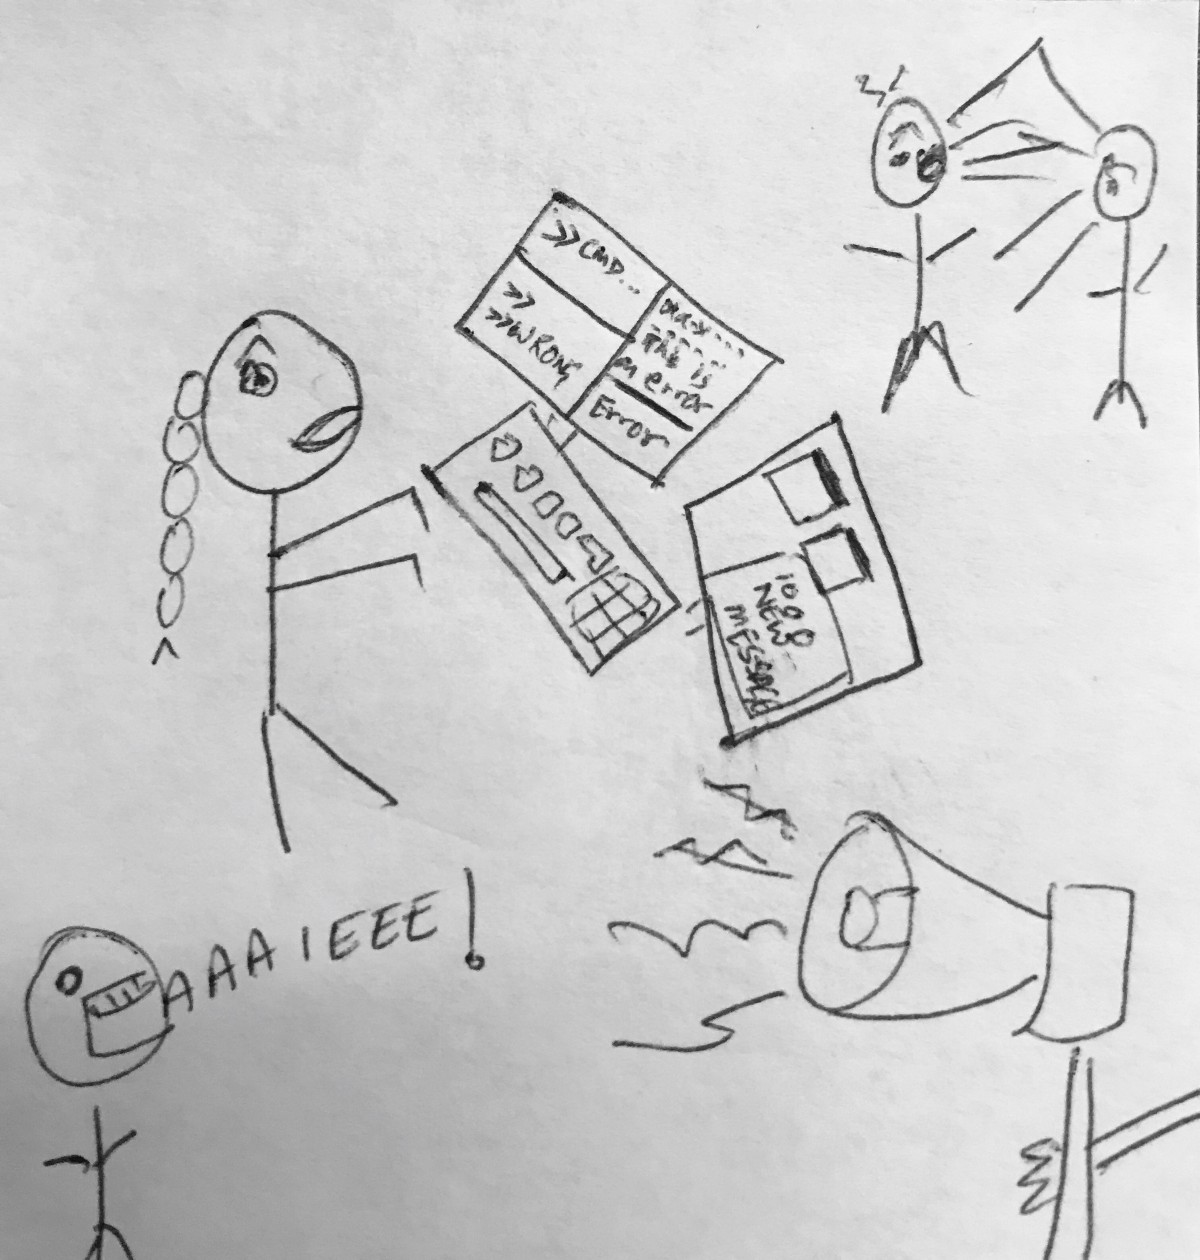 >>CMD...
>>
>>WRONG
this is
an error
Error
1000
NEW
MESSAGE
AAAIEEE!